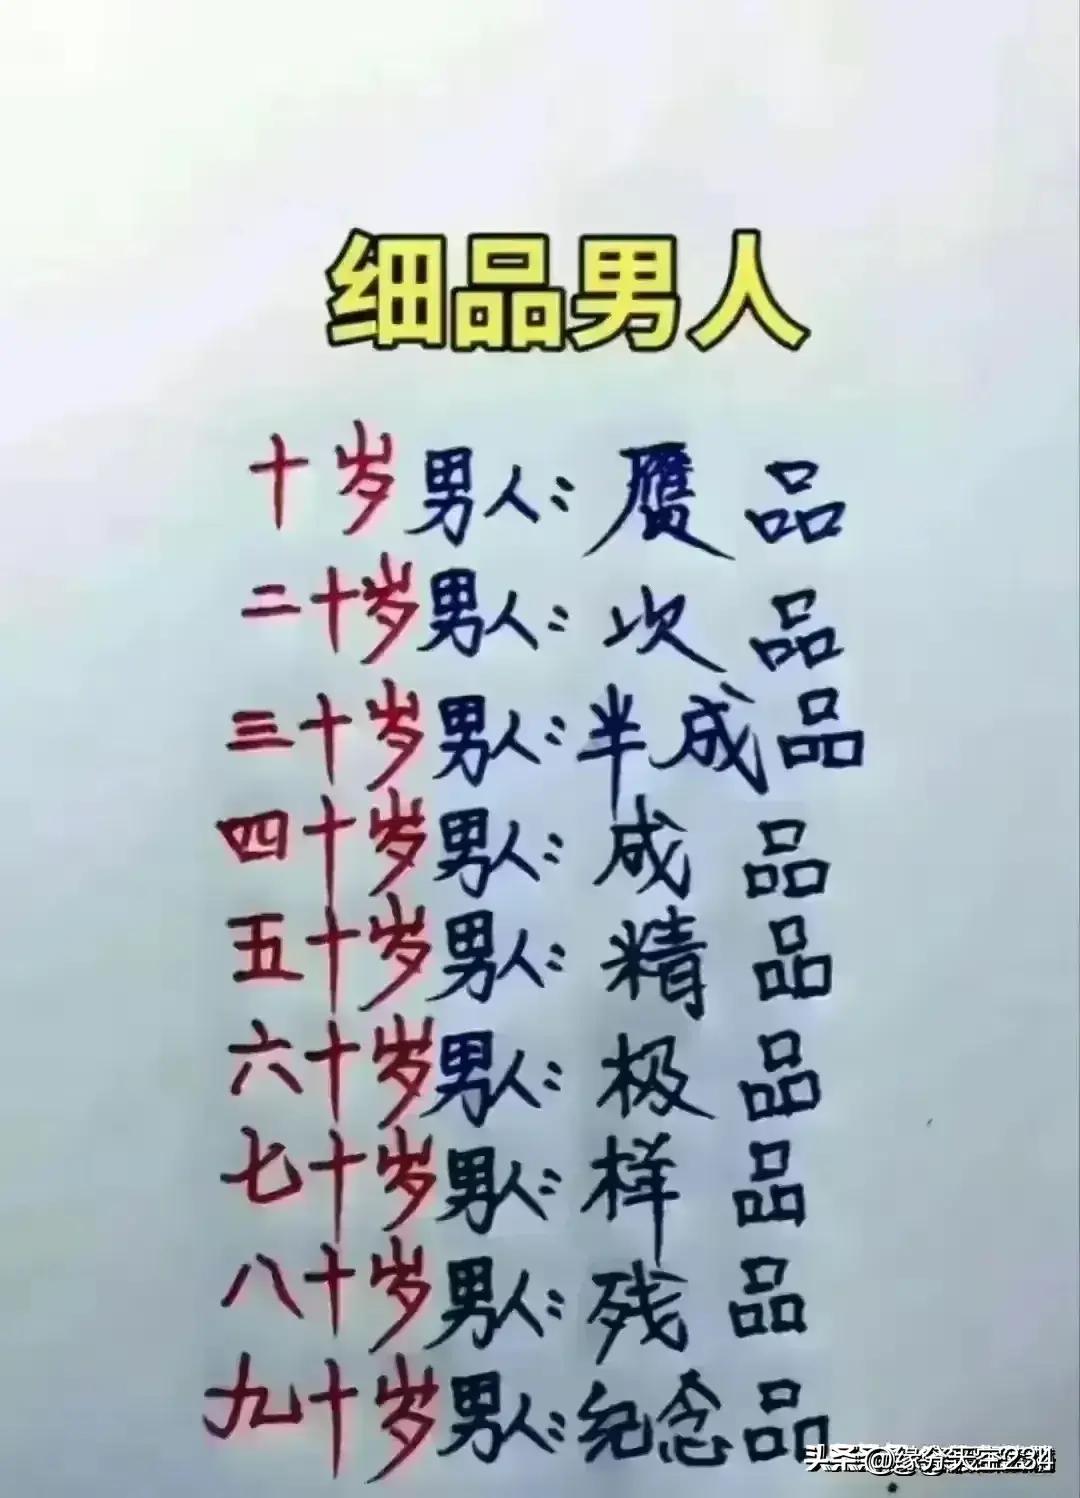 细品男人
十岁男人：赝品
二十岁男人：次品
三十岁男人：半成品
四十岁男人：成品
五十岁男人：精品
六十岁男人：极品
七十岁男人：样品
八十岁男人：残品
九十岁男人：纪念品
头条 @缘分天空234